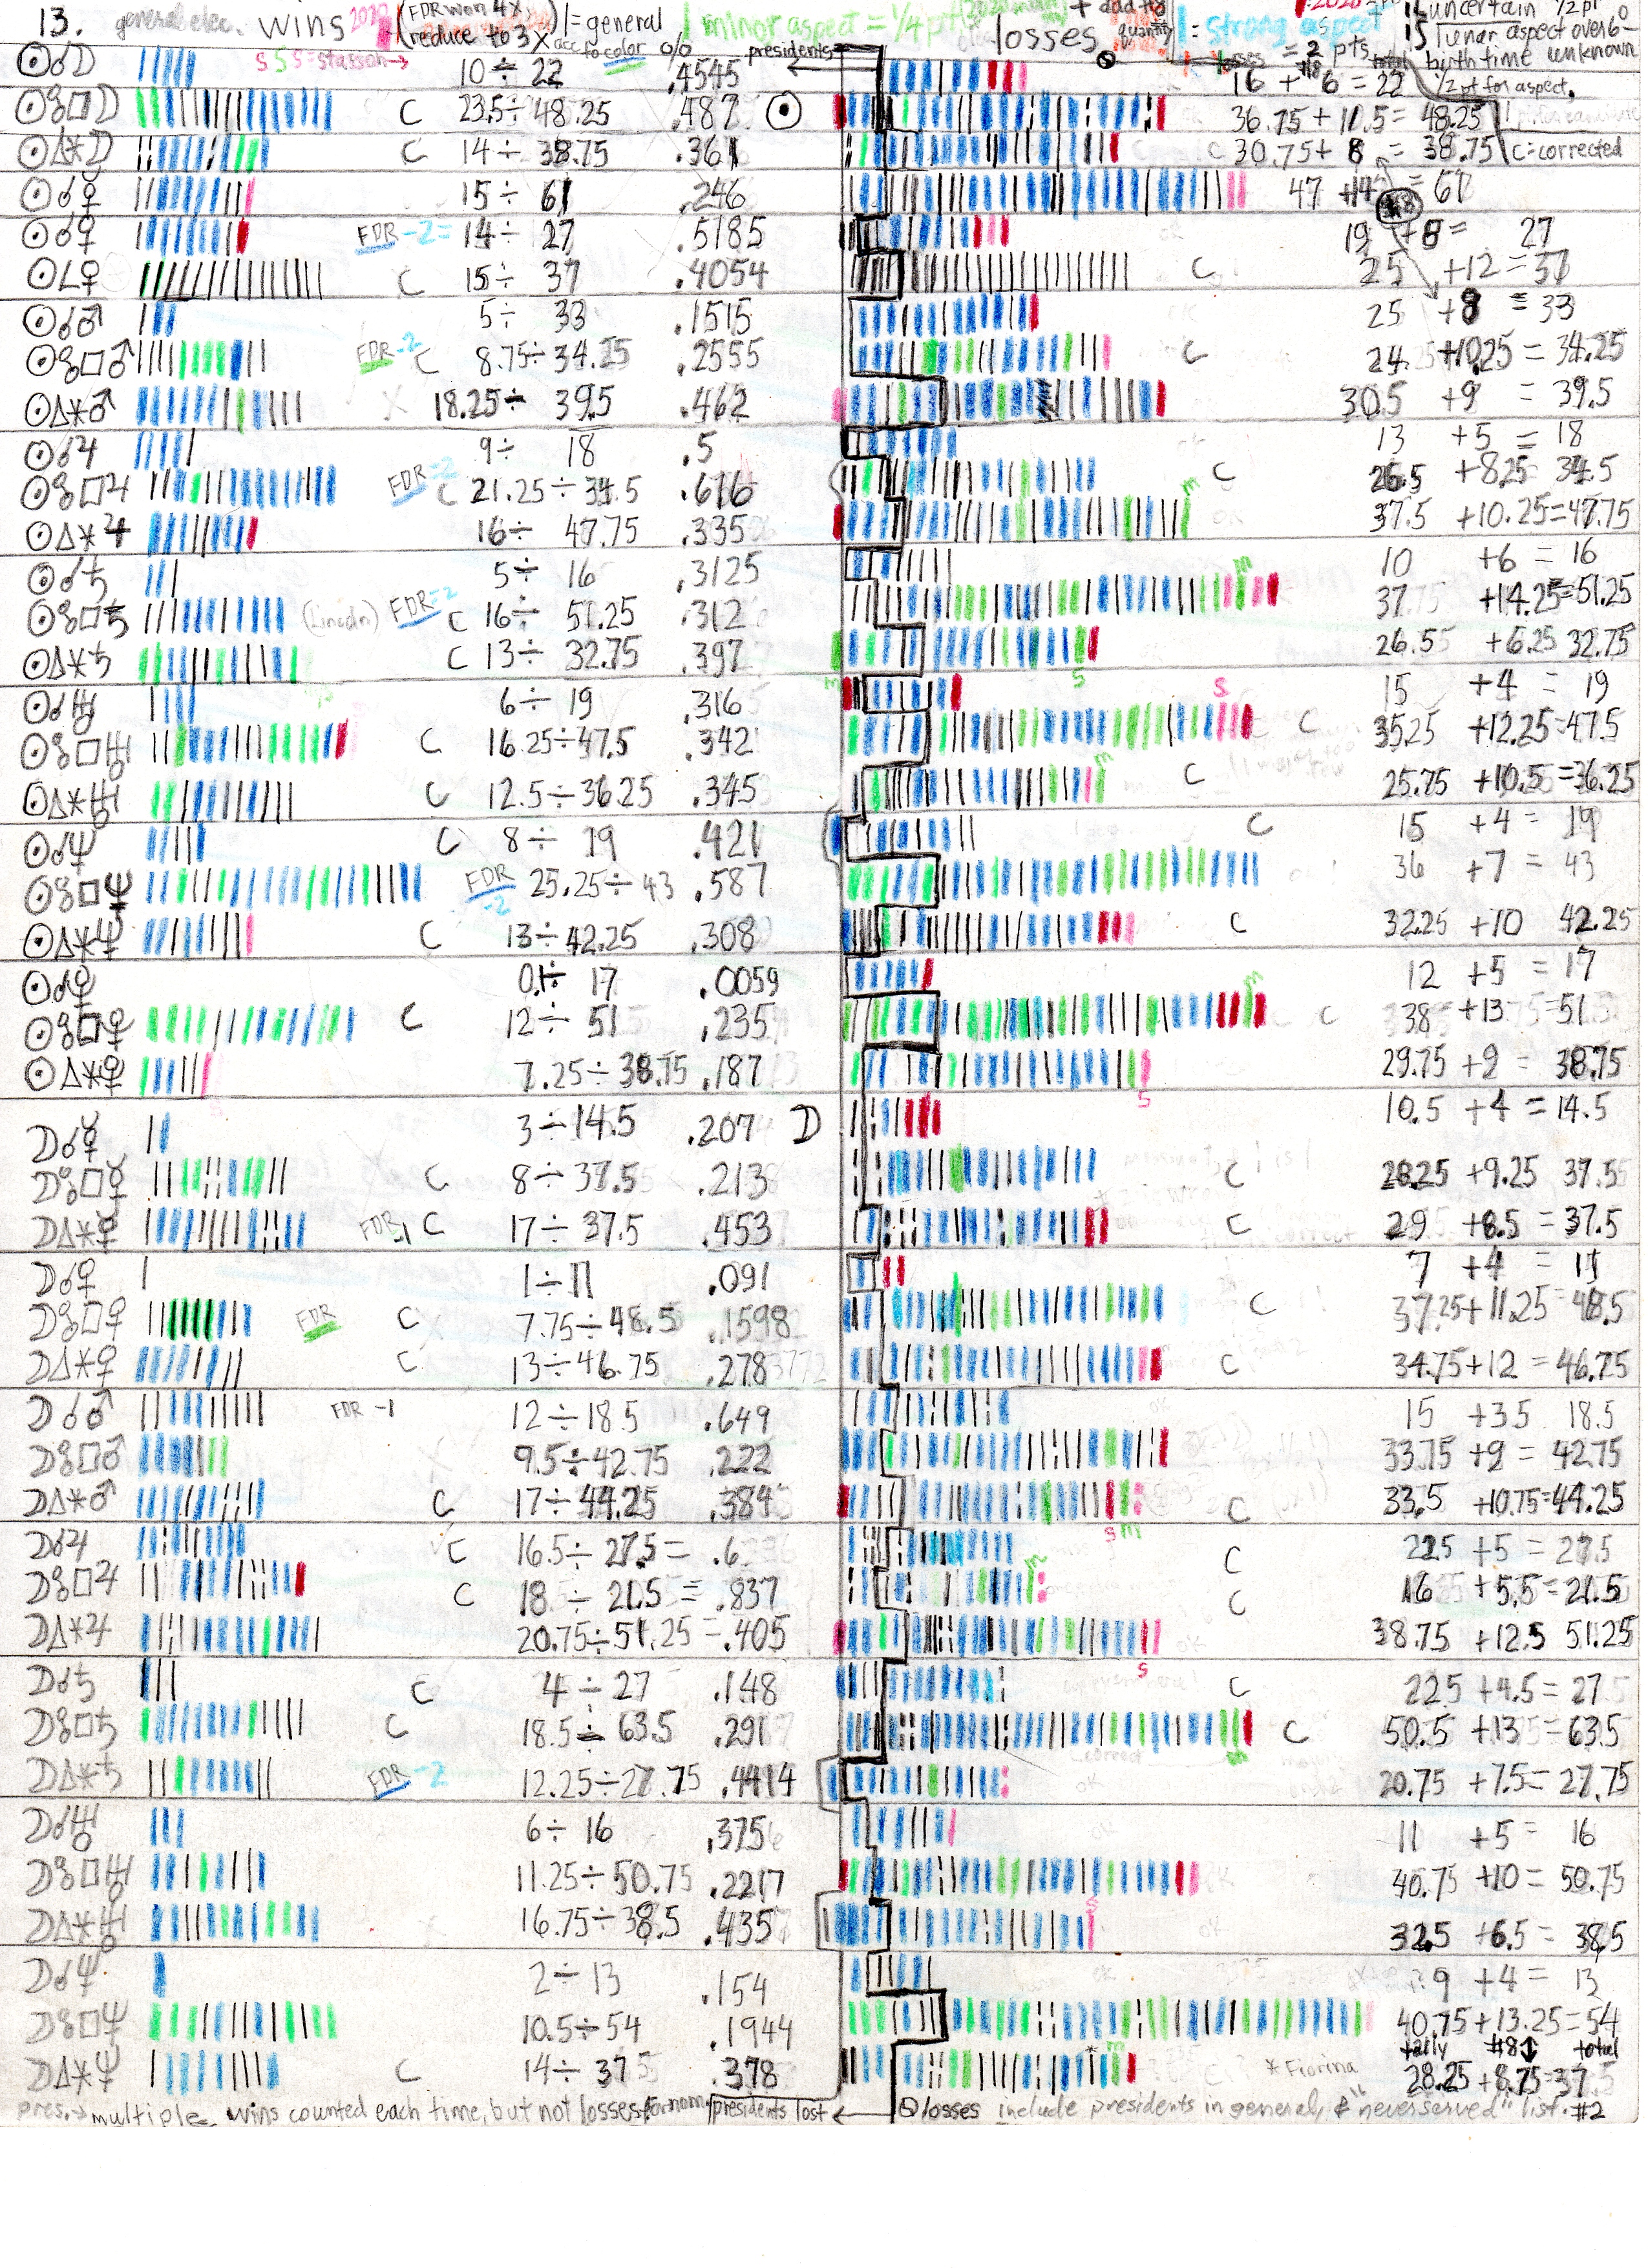 13. general elec. wins 2020 (FDR won 4x reduce to 3x acc to color) | = general | minor aspect = 1/4 pt losses + add to quantity | = strong aspect = 2 pts uncertain 1/2 pt
S S S = station → % presidents is lunar aspect over 6° birth time unknown 1/2 pt for aspect.
☉☌☽ 10 ÷ 22 .4545 16 + 6 = 22
☉☍□☽ C 23.5 ÷ 48.25 .487 ☉ 36.75 + 11.5 = 48.25
☉△✶☽ C 14 ÷ 38.75 .361 C 30.75 + 8 = 38.75 C = corrected
☉☌☿ 15 ÷ 61 .246 47 + 14 = 61
☉☌♀ FDR -2 = 14 ÷ 27 .5185 19 + 8 = 27
☉∠♀ C 15 ÷ 37 .4054 C 25 + 12 = 37
☉☌♂ 5 ÷ 33 .1515 25 + 8 = 33
☉☍□♂ FDR -2 C 8.75 ÷ 34.25 .2555 C 24 + 10.25 = 34.25
☉△✶♂ 18.25 ÷ 39.5 .462 30.5 + 9 = 39.5
☉☌♃ 9 ÷ 18 .5 13 + 5 = 18
☉☍□♃ FDR -2 C 21.25 ÷ 34.5 .616 C 26.5 + 8.25 34.5
☉△✶♃ 16 ÷ 47.75 .335 m OK 37.5 + 10.25 = 47.75
☉☌♄ 5 ÷ 16 .3125 10 + 6 = 16
☉☍□♄ (Lincoln) FDR -2 C 16 ÷ 51.25 .312 m 37 + 14.25 = 51.25
☉△✶♄ C 13 ÷ 32.75 .397 26.55 + 6.25 32.75
☉☌♅ 6 ÷ 19 .316 m S S 15 + 4 = 19
☉☍□♅ C 16.25 ÷ 47.5 .342 C 35.25 + 12.25 = 47.5
☉△✶♅ C 12.5 ÷ 36.25 .345 m C 25.75 + 10.5 = 36.25
☉☌♆ C 8 ÷ 19 .421 C 15 + 4 = 19
☉☍□♆ FDR -2 25.25 ÷ 43 .587 36 + 7 = 43
☉△✶♆ C 13 ÷ 42.25 .308 C 32.25 + 10 42.25
☉☌♇ 0.1 ÷ 17 .0059 12 + 5 = 17
☉☍□♇ C 12 ÷ 51 .235 m C 38 + 13 = 51
☉△✶♇ 7.25 ÷ 38.75 .187 S 29.75 + 9 = 38.75
☽☌☿ 3 ÷ 14.5 .207 ☽ 10.5 + 4 = 14.5
☽☍□☿ C 8 ÷ 37.5 .213 C 28.25 + 9.25 37.5
☽△✶☿ FDR -1 C 17 ÷ 37.5 .453 C 29 + 8.5 = 37.5
☽☌♀ 1 ÷ 11 .091 7 + 4 = 11
☽☍□♀ FDR C 7.75 ÷ 48.5 .1598 C 37.25 + 11.25 = 48.5
☽△✶♀ C 13 ÷ 46.75 .278 C 34.75 + 12 = 46.75
☽☌♂ FDR -1 12 ÷ 18.5 .649 15 + 3.5 18.5
☽☍□♂ 9.5 ÷ 42.75 .222 33.75 + 9 = 42.75
☽△✶♂ C 17 ÷ 44.25 .384 S m C 33.5 + 10.75 = 44.25
☽☌♃ C 16.5 ÷ 27.5 = .6 C 22.5 + 5 = 27.5
☽☍□♃ C 18 ÷ 21.5 = .837 m C 16 + 5.5 = 21.5
☽△✶♃ 20.75 ÷ 51.25 = .405 S OK 38.75 + 12.5 51.25
☽☌♄ C 4 ÷ 27 .148 C 22.5 + 4.5 = 27
☽☍□♄ C 18.5 ÷ 63.5 .291 m C 50.5 + 13 = 63.5
☽△✶♄ FDR -2 12.25 ÷ 27.75 .4414 OK 20.75 + 7.5 = 27.75
☽☌♅ 6 ÷ 16 .375 OK 11 + 5 = 16
☽☍□♅ 11.25 ÷ 50.75 .2217 40.75 + 10 = 50.75
☽△✶♅ 16.75 ÷ 38.5 .435 S OK 32.5 + 6.5 = 38.5
☽☌♆ 2 ÷ 13 .154 9 + 4 = 13
☽☍□♆ 10.5 ÷ 54 .1944 40.75 + 13.25 = 54
tally #8↕ total
☽△✶♆ C 14 ÷ 37 .378 * m * Fiorina 28.25 + 8.75 = 37
pres. → multiple wins counted each time, but not losses for nom. presidents lost ← losses include presidents in general, & "never served" list. #2